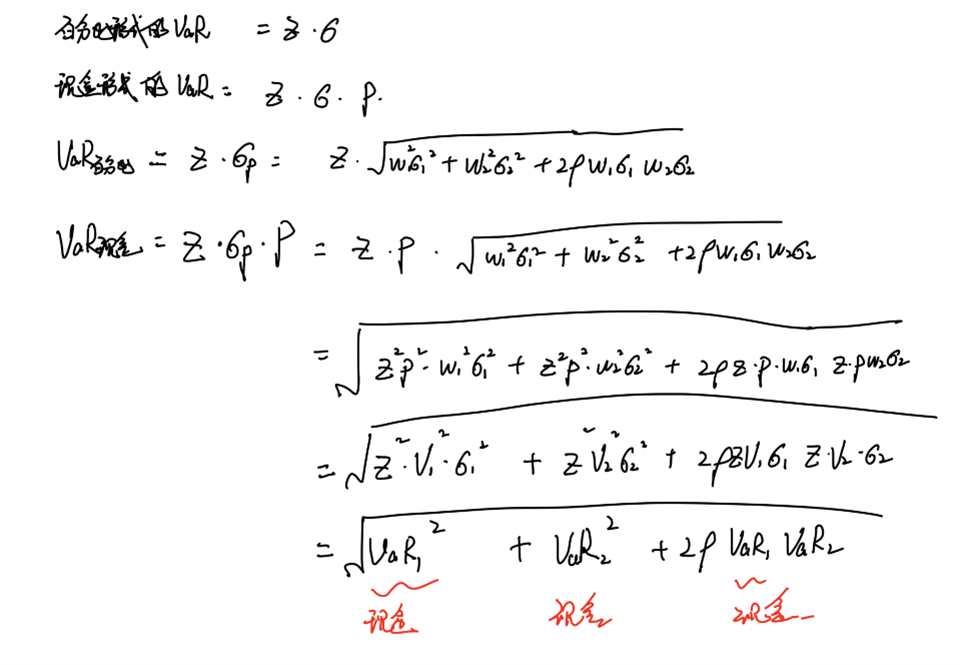 百分比形式的VaR = z·σ
现金形式的VaR = z·σ·P.
VaR百分比 = z·σp = z·√(w₁²σ₁² + w₂²σ₂² + 2ρw₁σ₁w₂σ₂)
VaR现金 = z·σp·P = z·P·√(w₁²σ₁² + w₂²σ₂² + 2ρw₁σ₁w₂σ₂)
= √(z²P²·w₁²σ₁² + z²P²·w₂²σ₂² + 2ρz·P·w₁σ₁ z·Pw₂σ₂)
= √(z²·V₁²·σ₁² + z²V₂²σ₂² + 2ρzV₁σ₁ z·V₂·σ₂)
= √(VaR₁² + VaR₂² + 2ρ VaR₁ VaR₂)
现金 现金 现金